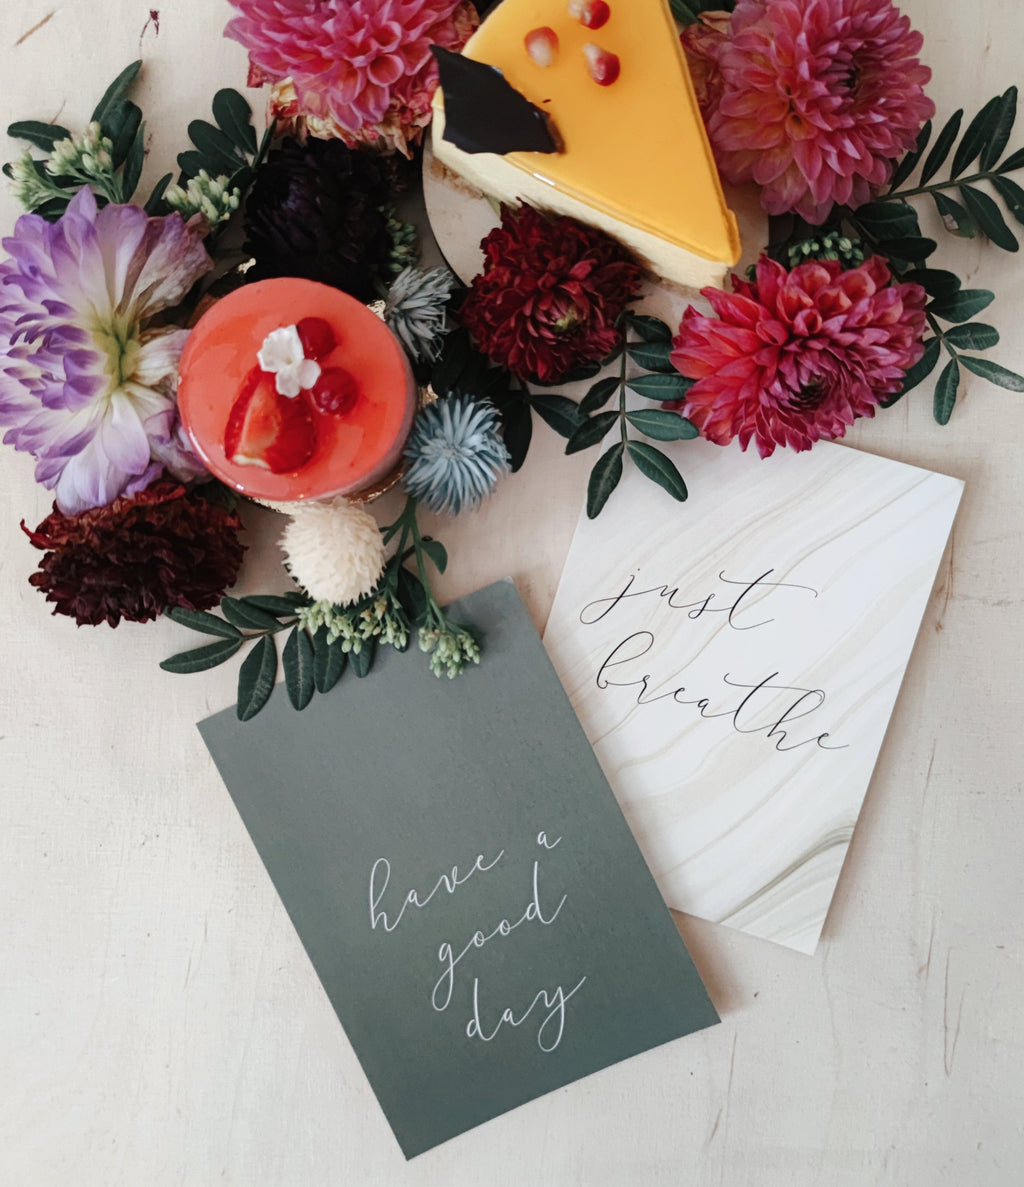 just
breathe
have a
good
day